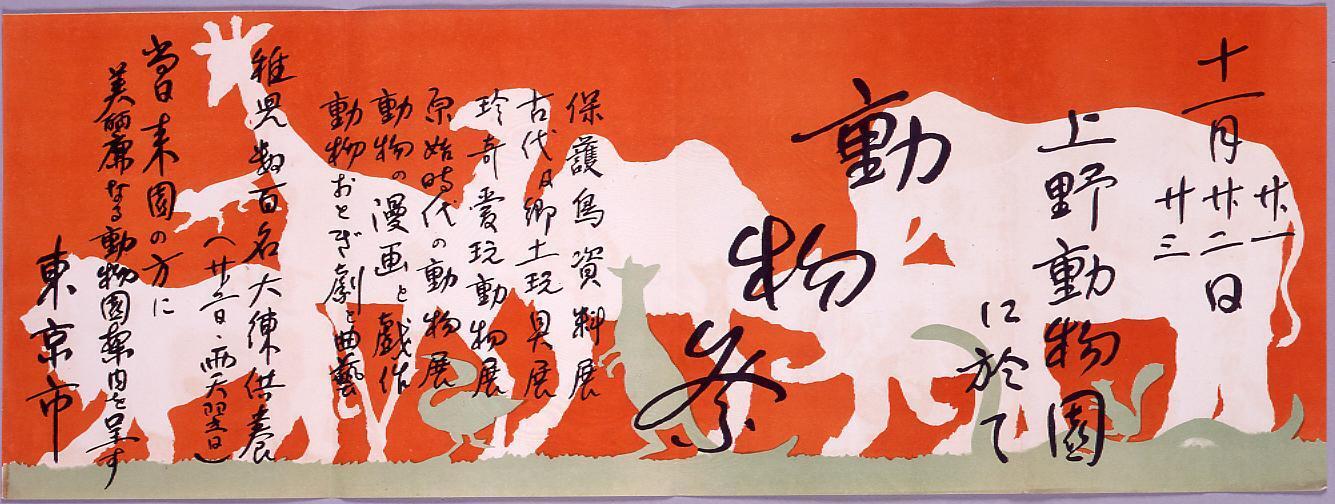 十一月
廿一
廿二日
廿三
上野動物園
に於て
動物祭
保護鳥資料展
古代及郷土玩具展
珍奇愛玩動物展
原始時代の動物展
動物の漫画と戯作
動物おとぎ劇と曲藝
稚児数百名大練供養
(廿三日・雨天翌日)
当日来園の方に
美麗なる動物園案内を呈す
東京市